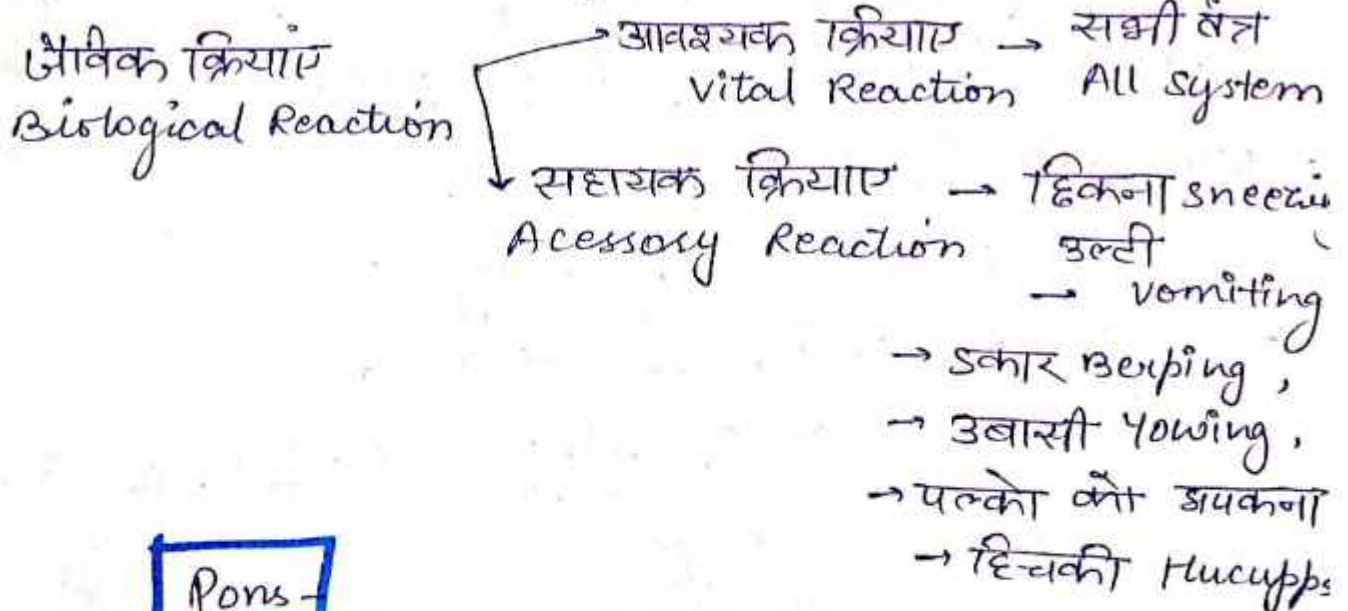 जैविक क्रियाएं
Biological Reaction
आवश्यक क्रियाए → सभी तंत्र
Vital Reaction All System
सहायक क्रियाए → छिकना sneezi
Acessory Reaction उल्टी
→ vomiting
→ डकार Berping,
→ उबासी Yowing,
→ पल्को को झपकना
→ हिचकी Hucupps
Pons-